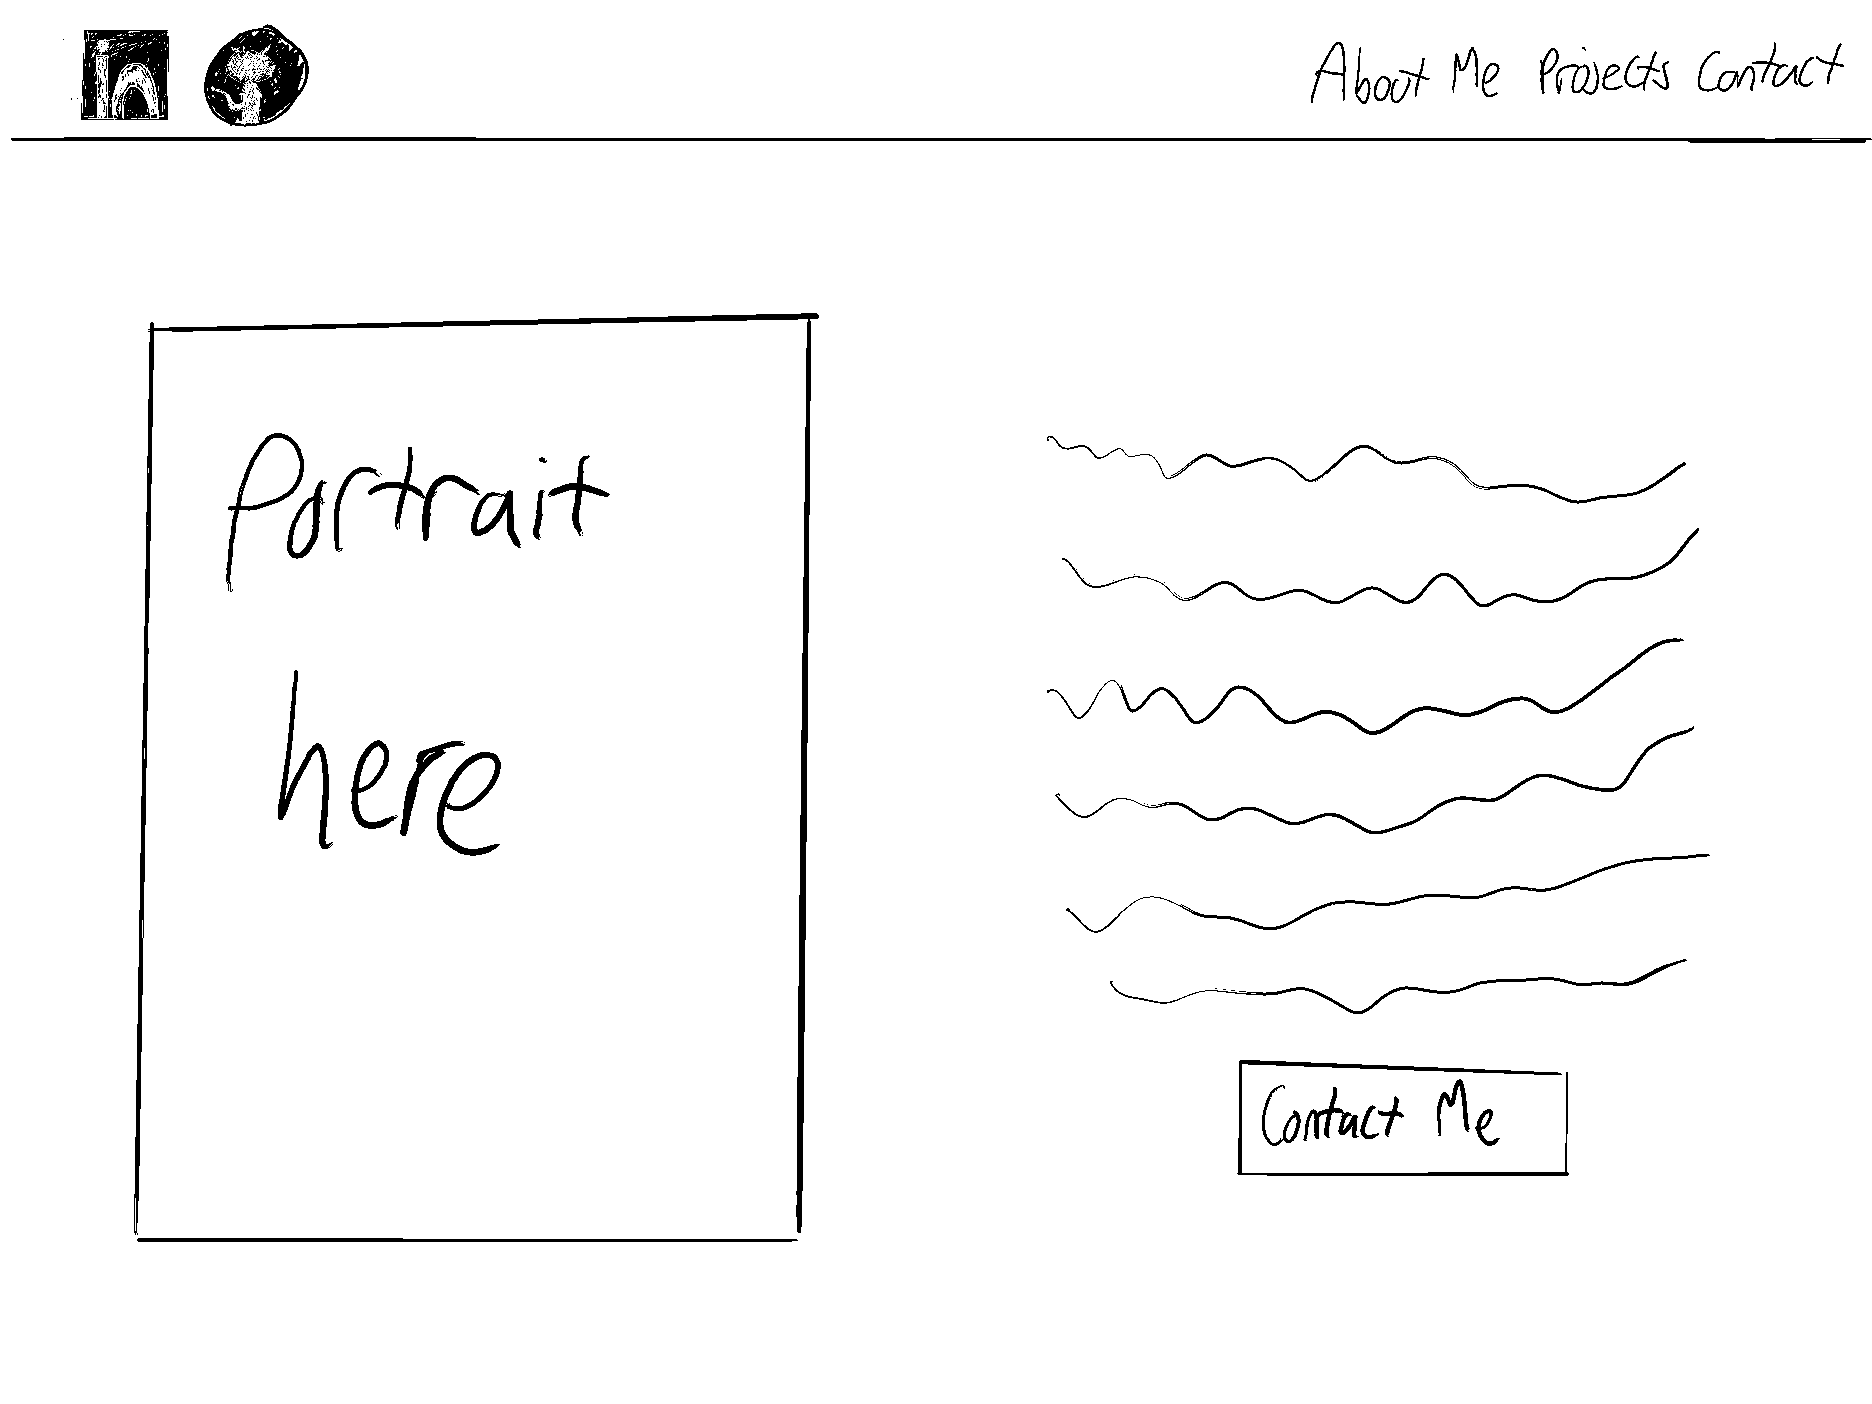 in
About Me Projects Contact
Portrait
here
Contact Me